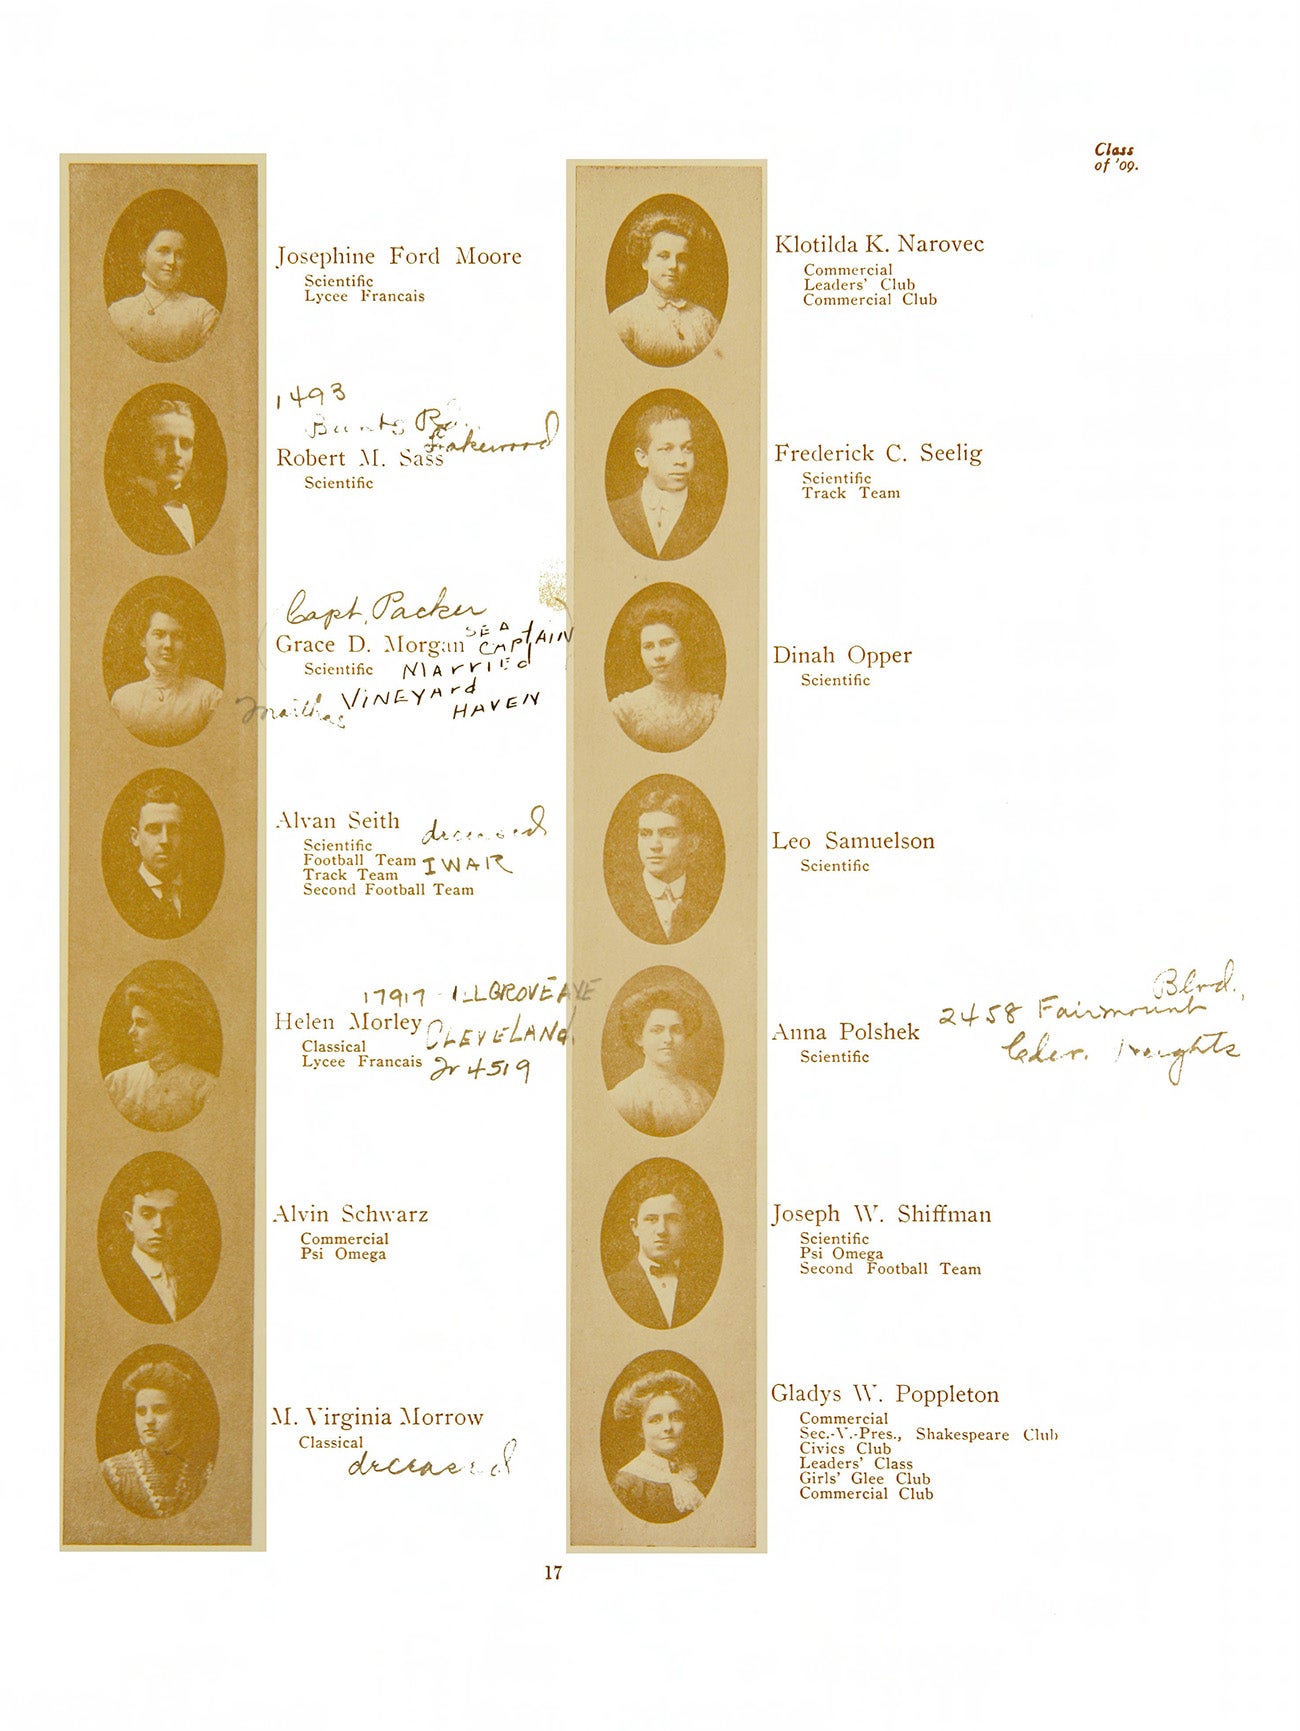 Class
of '09.
Josephine Ford Moore
Scientific
Lycee Francais
1493
Bunts Rd.
Lakewood
Robert M. Sass
Scientific
Capt. Packer
Grace D. Morgan
SEA
CAPTAIN
Scientific
MArriEd
Marthas VINEYArd
HAVEN
Alvan Seith
deceased
Scientific
Football Team
I WAR
Track Team
Second Football Team
17917
AVE
Helen Morley
CLEVELANd
Classical
Lycee Francais
4519
Alvin Schwarz
Commercial
Psi Omega
M. Virginia Morrow
Classical
deceased
Klotilda K. Narovec
Commercial
Leaders' Club
Commercial Club
Frederick C. Seelig
Scientific
Track Team
Dinah Opper
Scientific
Leo Samuelson
Scientific
Anna Polshek
Scientific
Blvd.,
2458 Fairmount
Clev. Heights
Joseph W. Shiffman
Scientific
Psi Omega
Second Football Team
Gladys W. Poppleton
Commercial
Sec.-V.-Pres., Shakespeare Club
Civics Club
Leaders' Class
Girls' Glee Club
Commercial Club
17